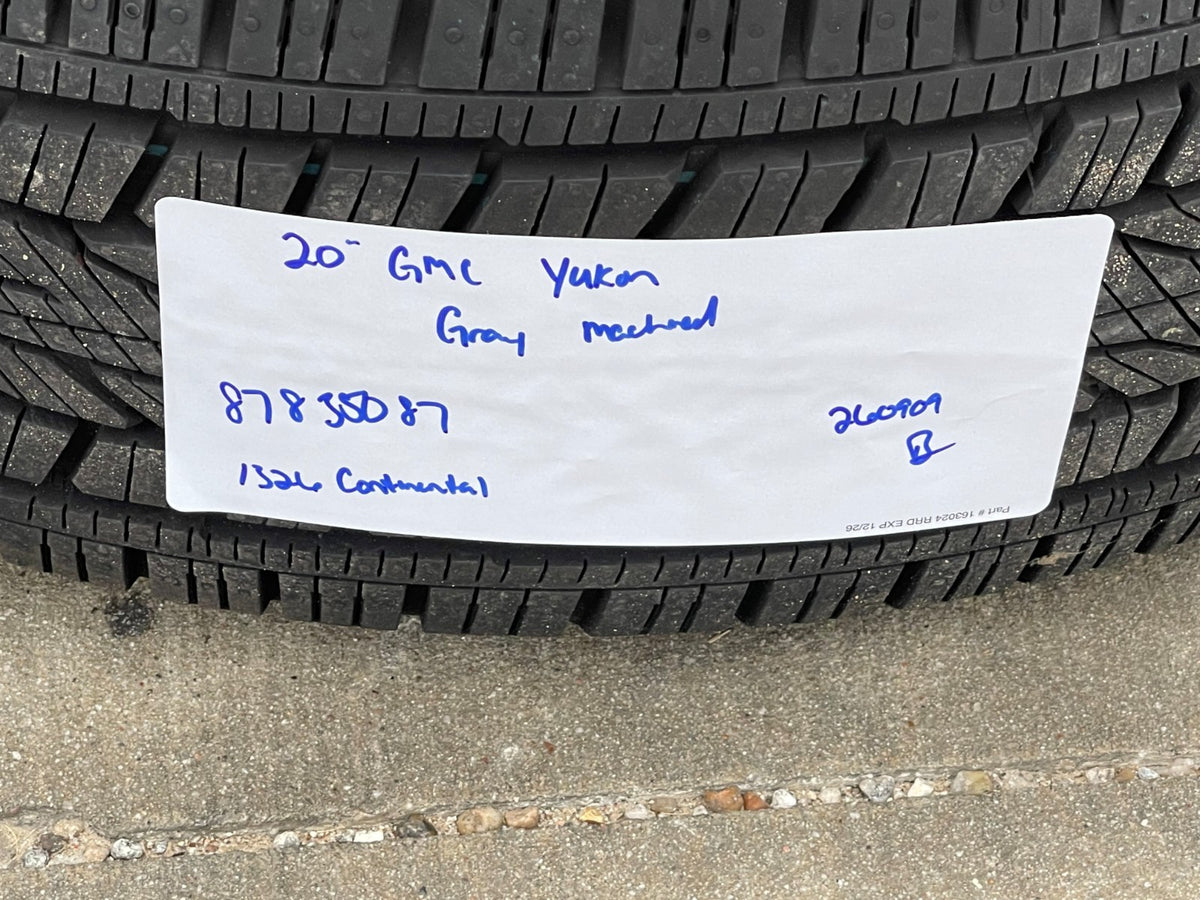 20" GMC Yukon
Gray machined
87835087
260909
1326 Continental
Part # 163024 RRD EXP 12/26